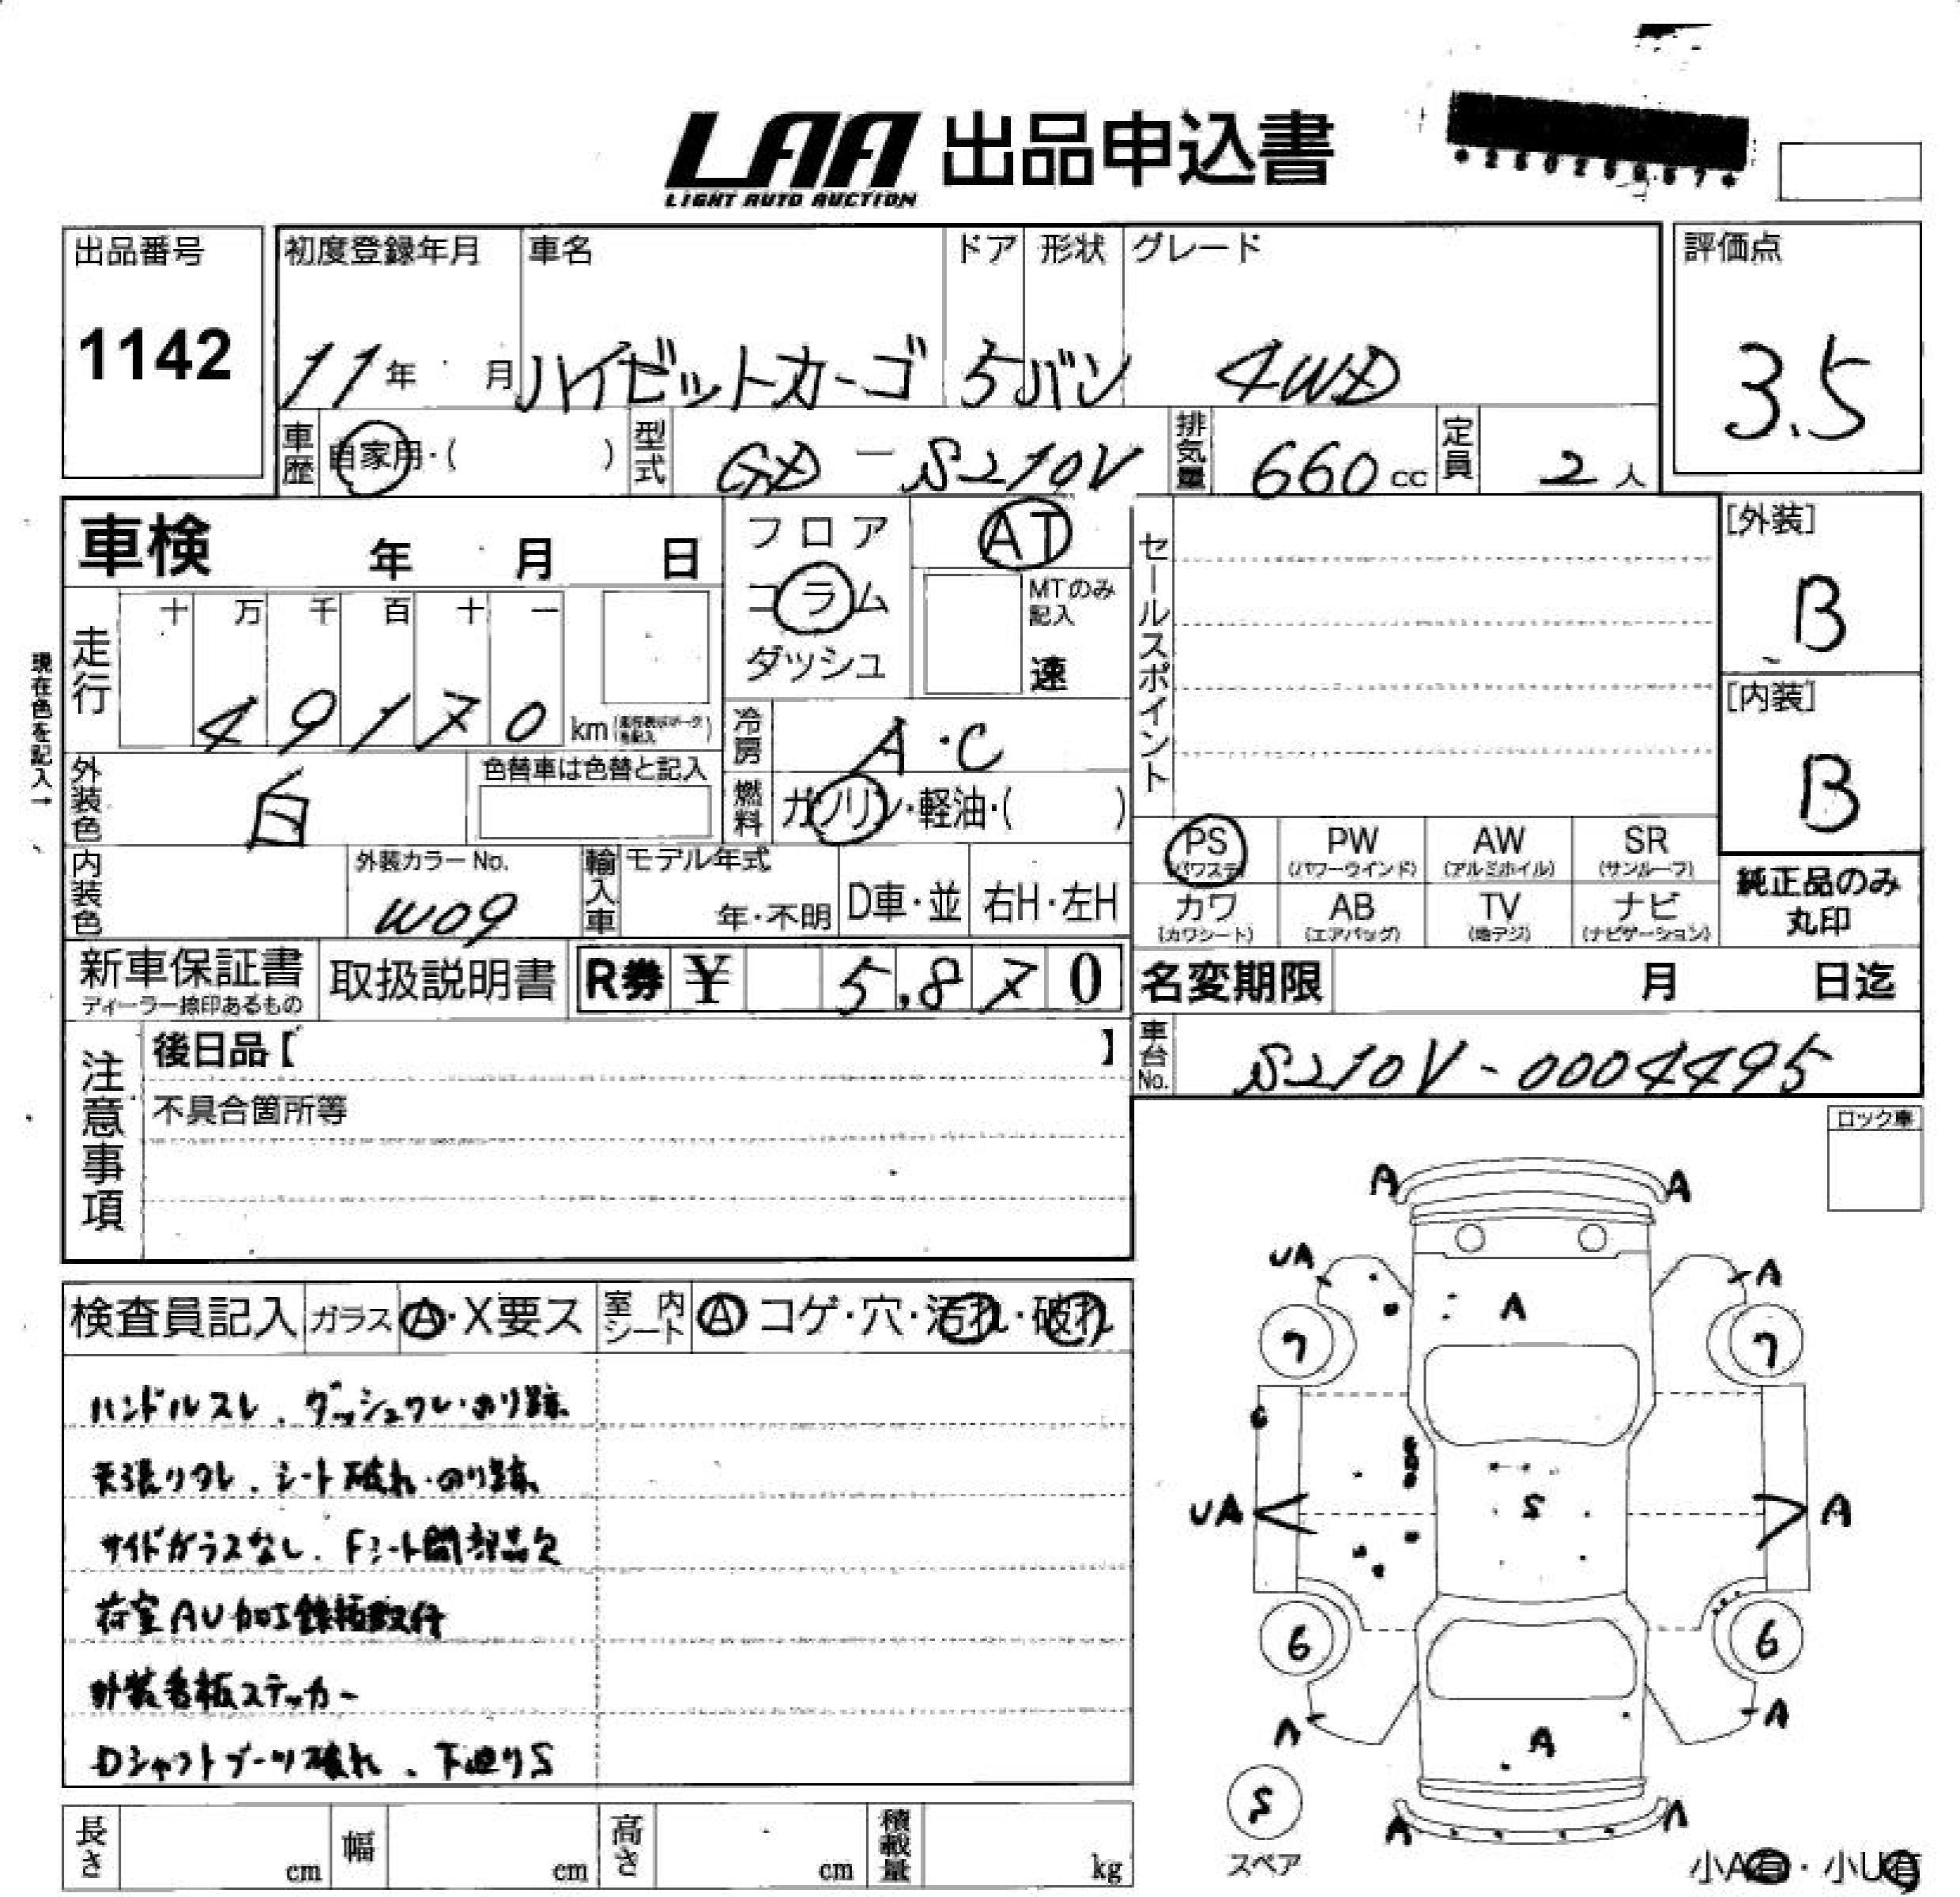 LAA 出品申込書
LIGHT AUTO AUCTION
出品番号
1142
初度登録年月 車名 ドア 形状 グレード
11年 月 ハイゼットカーゴ 5 バン 4WD
評価点
3.5
車歴 自家用・( ) 型式 GD-S210V 排気量 660cc 定員 2人
車検 年 月 日
フロア
コラム
ダッシュ
AT
MTのみ記入
速
セールスポイント
[外装]
B
[内装]
B
現在色を記入→
走行 十 万 千 百 十 一
49170 km
冷房 A・C
外装色 白 色替車は色替と記入
燃料 ガソリン・軽油・( )
内装色 外装カラーNo. W09
輸入車 モデル年式 年・不明 D車・並 右H・左H
PS (パワステ) PW (パワーウインド) AW (アルミホイル) SR (サンルーフ)
カワ (カワシート) AB (エアバッグ) TV (地デジ) ナビ (ナビゲーション)
純正品のみ
丸印
新車保証書 取扱説明書 R券 ¥ 5,870
ディーラー捺印あるもの
名変期限 月 日迄
車台No. S210V-0004495
注意事項
後日品【 】
不具合箇所等
ロック車
検査員記入 ガラス A・X要ス 室内シート A コゲ・穴・汚れ・破れ
ハンドルスレ、ダッシュワレ・のり跡
天張リワレ、シート破れ・のり跡
サイドガラスなし、Fシート間部品欠
荷室AU加工鉄板取付
外装看板ステッカー
Dシャフトブーツ破れ、下廻りS
A A
UA A
A
7 7
UA S A
6 6
A A A
S
スペア
A A
小A有・小U有
長さ cm 幅 cm 高さ cm 積載量 kg